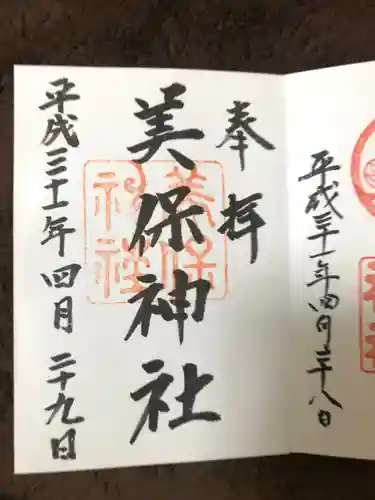 平成三十一年四月二十八日
奉拝
美保神社
美保神社
平成三十一年四月二十九日